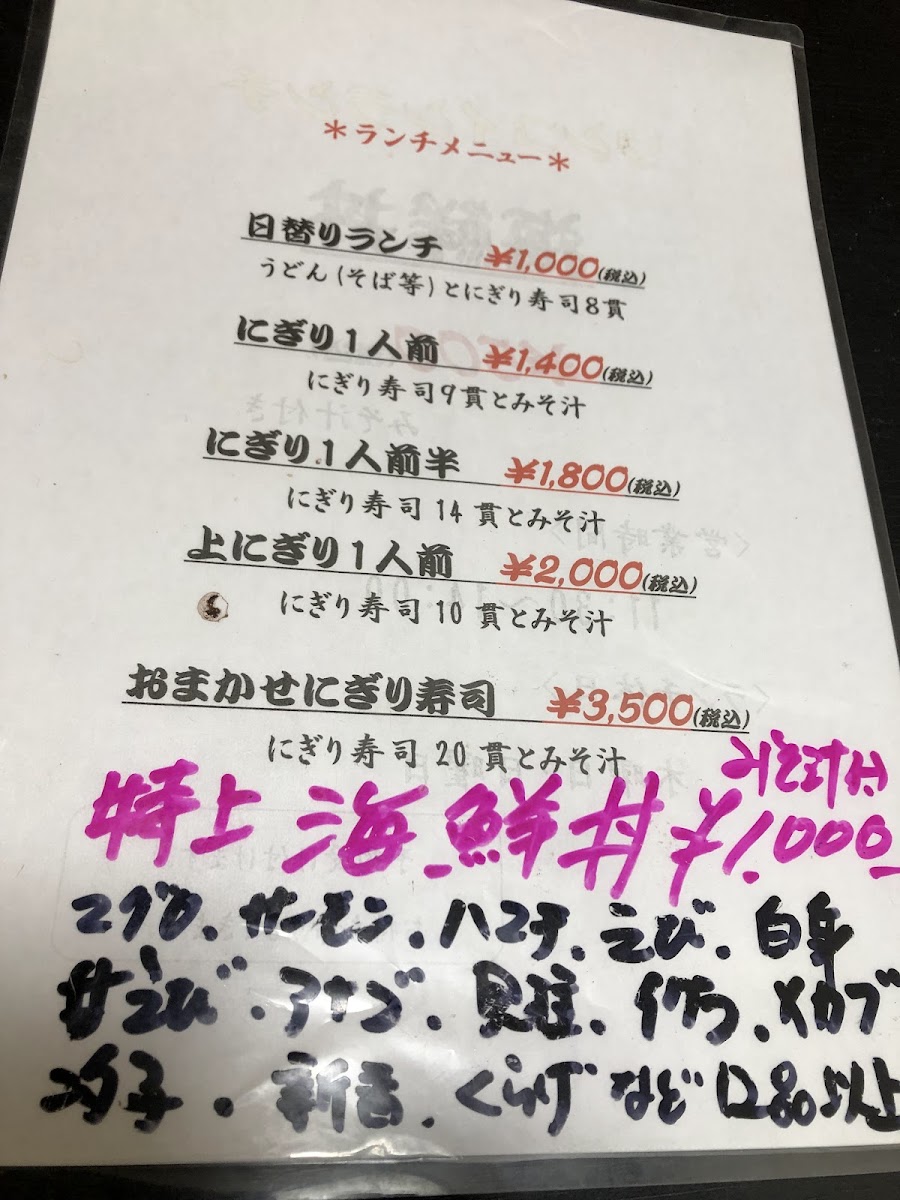 ＊ランチメニュー＊
日替りランチ ¥1,000(税込)
うどん(そば等)とにぎり寿司8貫
にぎり1人前 ¥1,400(税込)
にぎり寿司9貫とみそ汁
にぎり1人前半 ¥1,800(税込)
にぎり寿司14貫とみそ汁
上にぎり1人前 ¥2,000(税込)
にぎり寿司10貫とみそ汁
おまかせにぎり寿司 ¥3,500(税込)
にぎり寿司20貫とみそ汁
みそ汁付
特上海鮮丼¥1.000-
マグロ.サーモン.ハマチ.えび.白身
甘えび.アナゴ.貝柱.イクラ.メカブ
.新香.くらげなど12品以上